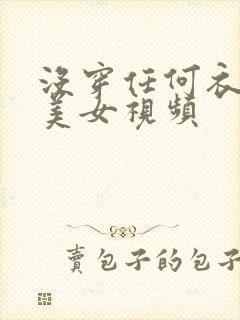 沒穿任何衣
美女視頻
賣包子的包子